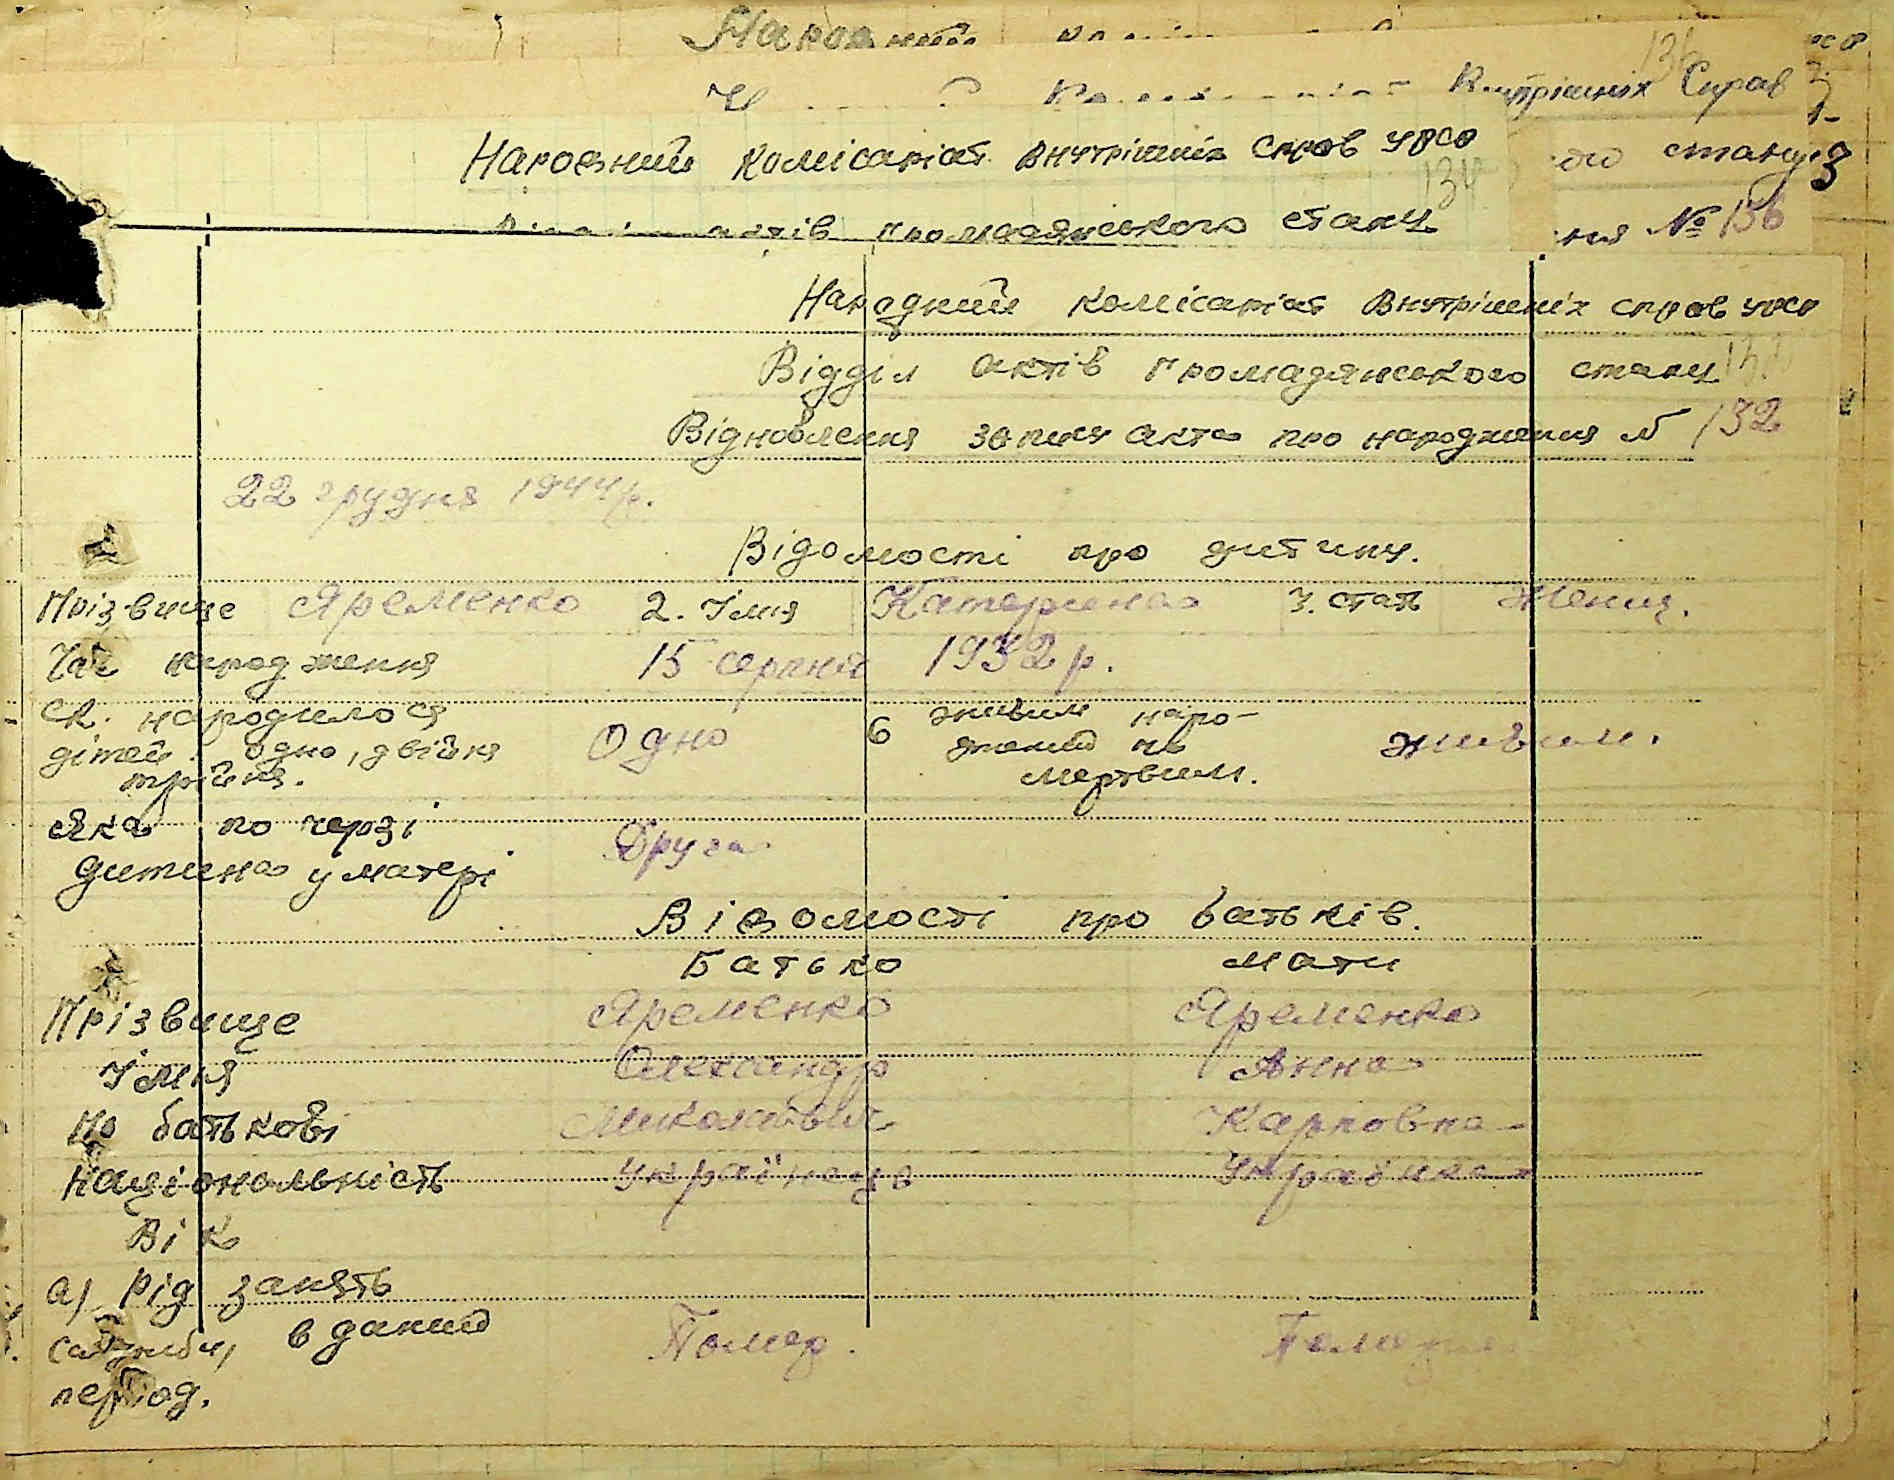 Народний
Внутрішніх Справ
136
Народний комісаріат внутрішніх справ УРСР
134
стану
актів громадянського стану
№ 136
Народний комісаріат внутрішніх справ УРСР
Відділ актів громадянського стану
Відновлення запису акта про народження № 132
22 грудня 1944 р.
Відомості про дитину.
Прізвище Яременко 2. Імя Катерина 3. стать Жеищ.
Час народження 15 серпня 1932 р.
Ск. народилося дітей: одно, двійня трійня. Одно 6 живим народжений чи мертвим. живим.
Яка по черзі Друга
дитина у матері
Відомості про батьків.
Батько мати
Прізвище Яременко Яременко
Імя Олександр Анна
По батькові Миколайович Карповна
Національність Українець Українка
Вік
а) Рід занять
(служби) в даний Помер.
період.